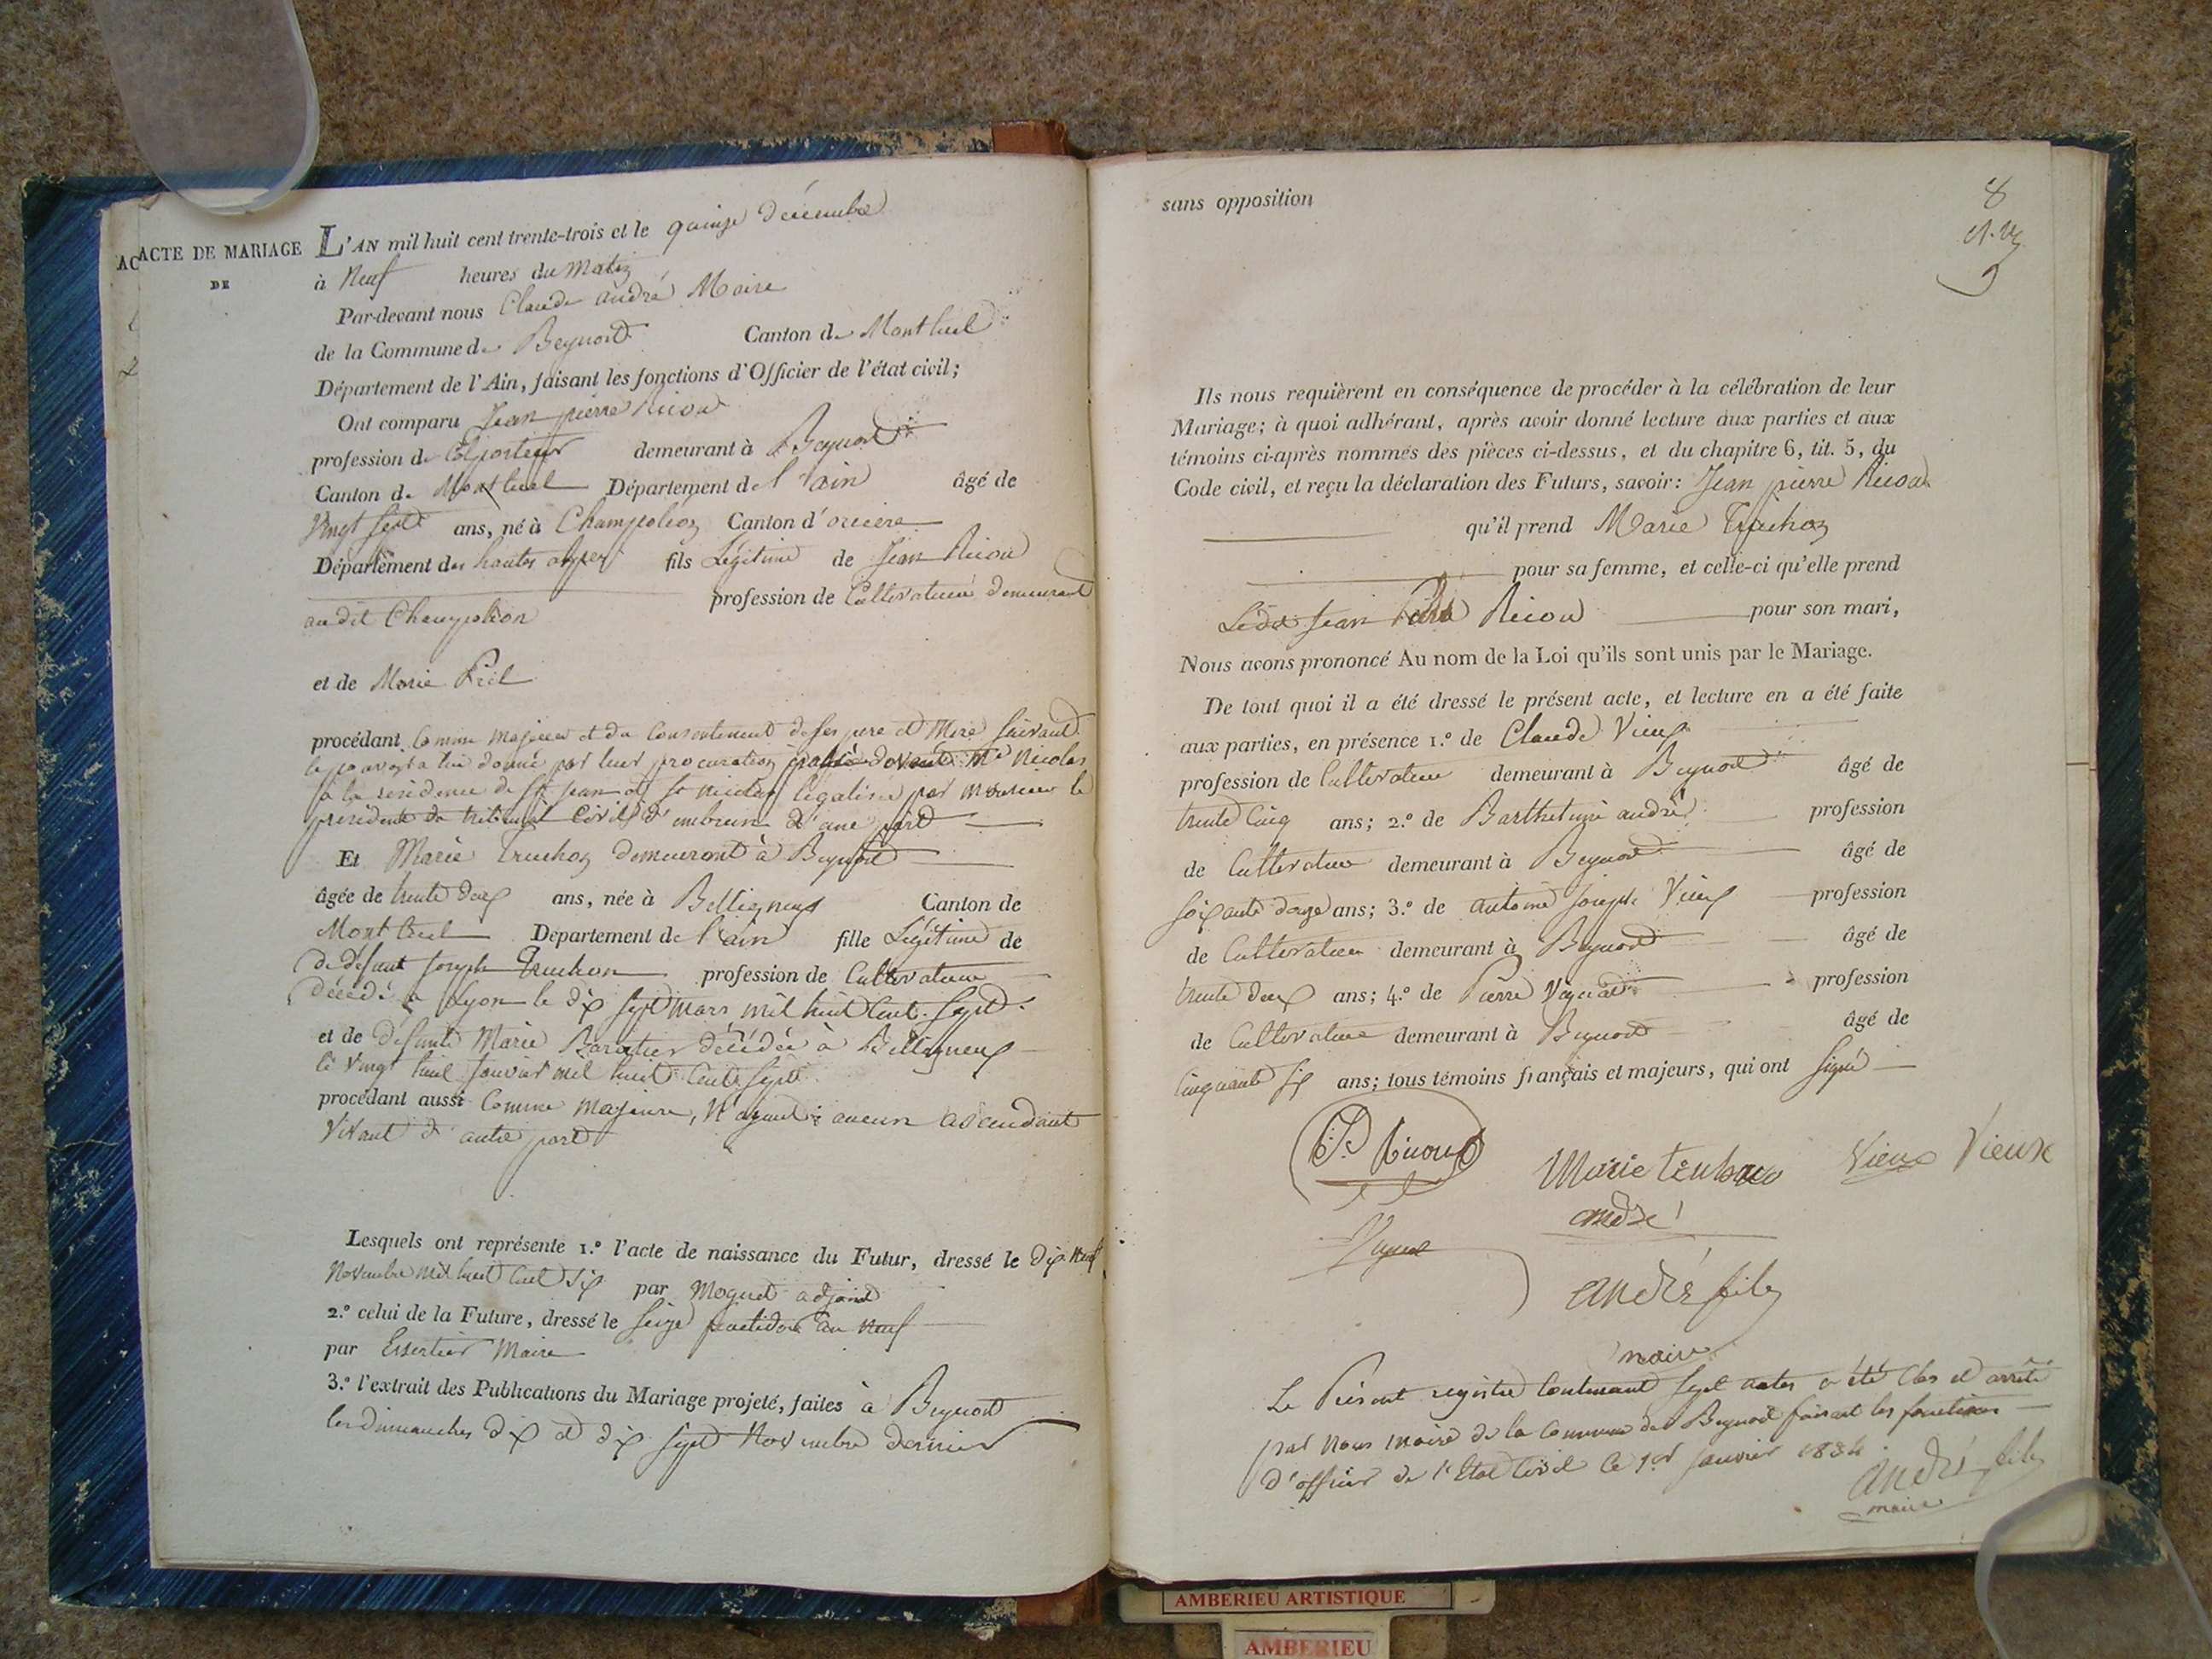 ACTE DE MARIAGE
DE
L'AN mil huit cent trente-trois et le quinze décembre
à Neuf heures du Matin
Par-devant nous Claude andré Maire
de la Commune de Beynost Canton de Montluel
Département de l'Ain, faisant les fonctions d'Officier de l'état civil;
Ont comparu Jean pierre Ricou
profession de Colporteur demeurant à Beynost
Canton de Montluel Département de l'ain âgé de
Vingt Sept ans, né à Champoleon Canton d'orciere
Département des hautes alpes fils Légitime de Jean Ricou
profession de Cultivateur demeurant
au dit Champoleon
et de Marie
procédant Comme Majeur et du Consentement de ses pere et Mere Suivant
le pouvoir a lui donné par leur procuration devant Me Nicolas
a la residence de St Jean et St nicolas légalisé par monsieur le
president du tribunal Civil d'embrun d'une part
Et Marie Truchon demeurant à Beynost
âgée de trente deux ans, née à Belligneux Canton de
Montluel Département de l'ain fille Légitime de
De défunt Joseph Truchon profession de Cultivateur
décédé a Lyon le dix sept mars mil huit Cent Sept
et de défunte Marie Baratier décédée à Belligneux
le Vingt huit Janvier mil huit Cent Sept
procédant aussi Comme majeure, N'ayant aucun ascendant
Vivant d'autre part
Lesquels ont représenté 1.º l'acte de naissance du Futur, dressé le Dix Neuf
Novembre mil huit Cent Six par Moguet adjoint
2.º celui de la Future, dressé le Seize fructidor an Neuf
par Essertier Maire
3.º l'extrait des Publications du Mariage projeté, faites à Beynost
les dimanches dix et dix sept Novembre dernier
sans opposition
8
Ils nous requièrent en conséquence de procéder à la célébration de leur
Mariage; à quoi adhérant, après avoir donné lecture aux parties et aux
témoins ci-après nommés des pièces ci-dessus, et du chapitre 6, tit. 5, du
Code civil, et reçu la déclaration des Futurs, savoir: Jean pierre Ricou
qu'il prend Marie Truchon
pour sa femme, et celle-ci qu'elle prend
Ledit Jean Pierre Ricou pour son mari,
Nous avons prononcé Au nom de la Loi qu'ils sont unis par le Mariage.
De tout quoi il a été dressé le présent acte, et lecture en a été faite
aux parties, en présence 1.º de Claude Vieux
profession de Cultivateur demeurant à Beynost âgé de
trente Cinq ans; 2.º de Barthelemi andré profession
de Cultivateur demeurant à Beynost âgé de
Soixante douze ans; 3.º de antoine Joseph Vieux profession
de Cultivateur demeurant à Beynost âgé de
trente deux ans; 4.º de Pierre profession
de Cultivateur demeurant à Beynost âgé de
Cinquante Six ans; tous témoins français et majeurs, qui ont Signé
Ricou Marie Vieux Vieux
andré
andré fils
maire
Le Présent registre Contenant Sept actes a été Clos et arrêté
par Nous maire de la Commune de Beynost faisant les fonctions
d'officier de l'Etat Civil le 1er Janvier 1834
andré fils
maire
AMBERIEU ARTISTIQUE
AMBERIEU